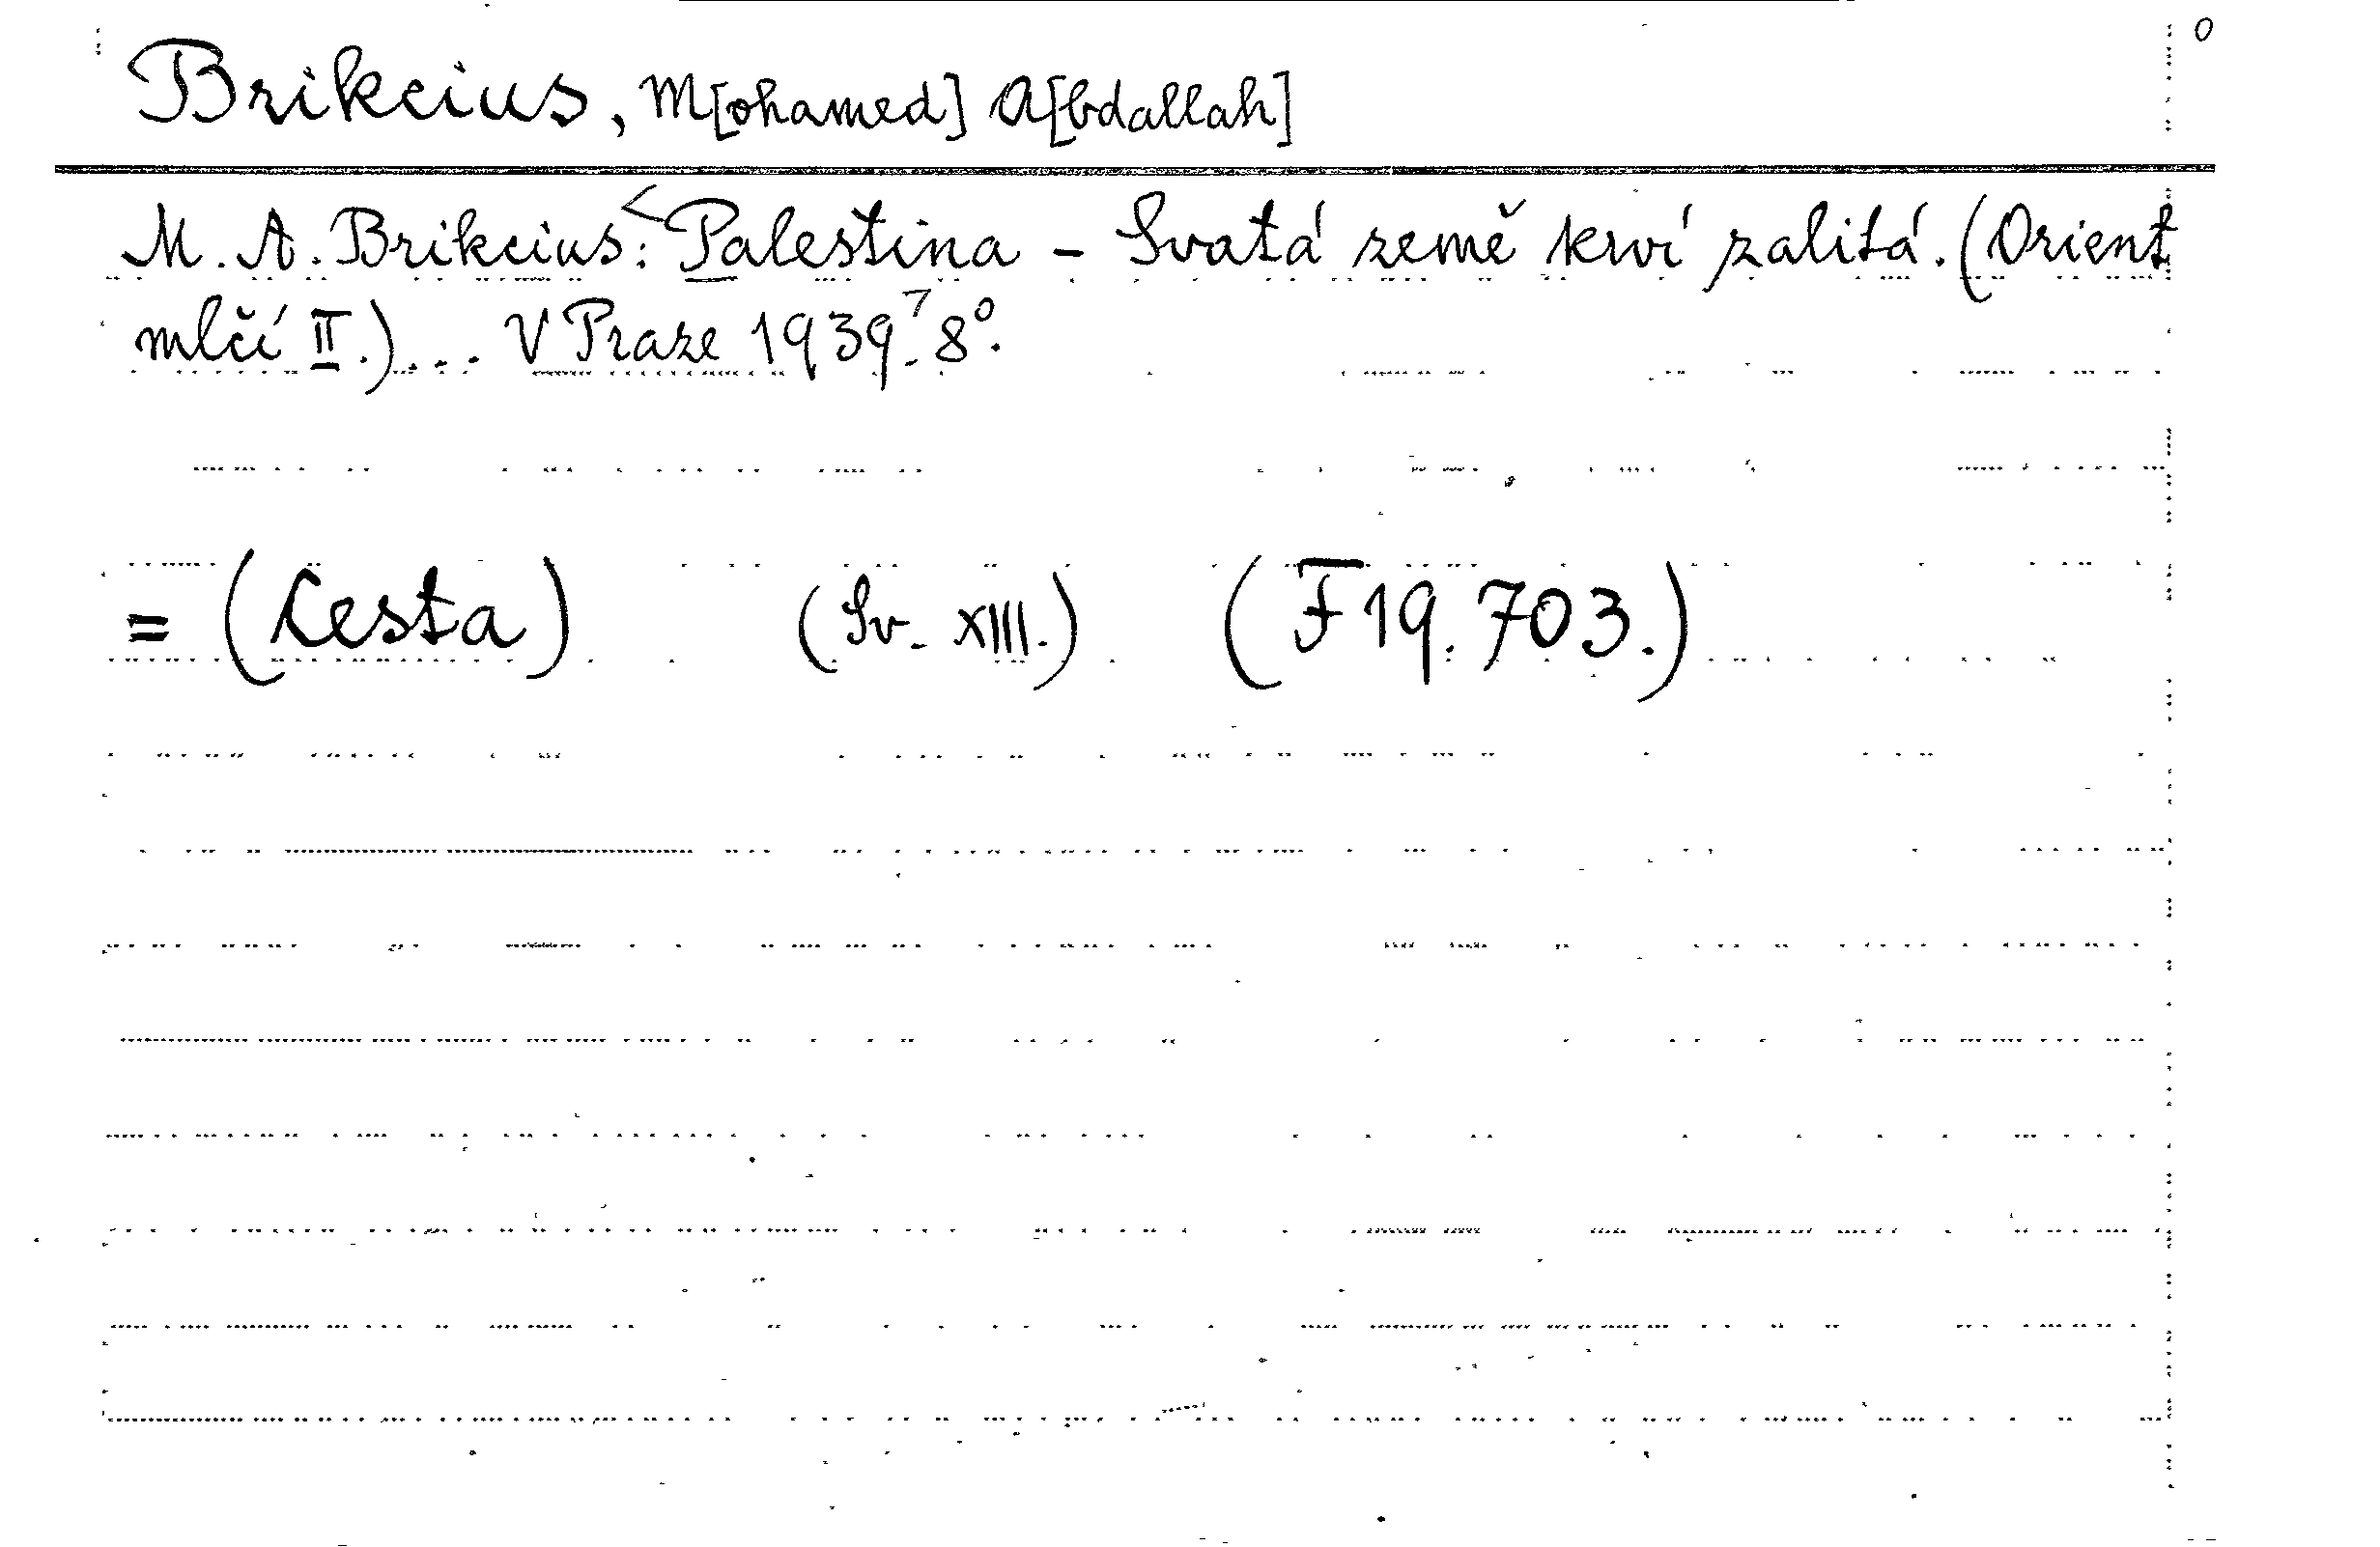 0
Brikcius, M[ohamed] A[bdallah]
M. A. Brikcius: <Palestina - Svatá země krví zalitá. (Orient
mlčí II.) ... V Praze 1939.7 8º.
= (Cesta) (Sv. XIII.) (F19.703.)